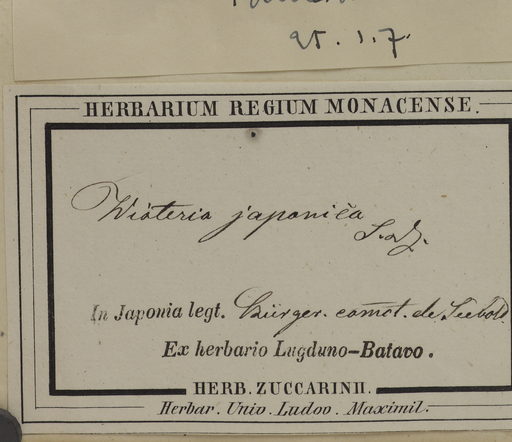 25.1.7.
HERBARIUM REGIUM MONACENSE.
Wisteria japonica
S. & Z.
In Japonia legt. Bürger. comct. de Siebold.
Ex herbario Lugduno-Batavo.
HERB. ZUCCARINII.
Herbar. Univ. Ludov. Maximil.